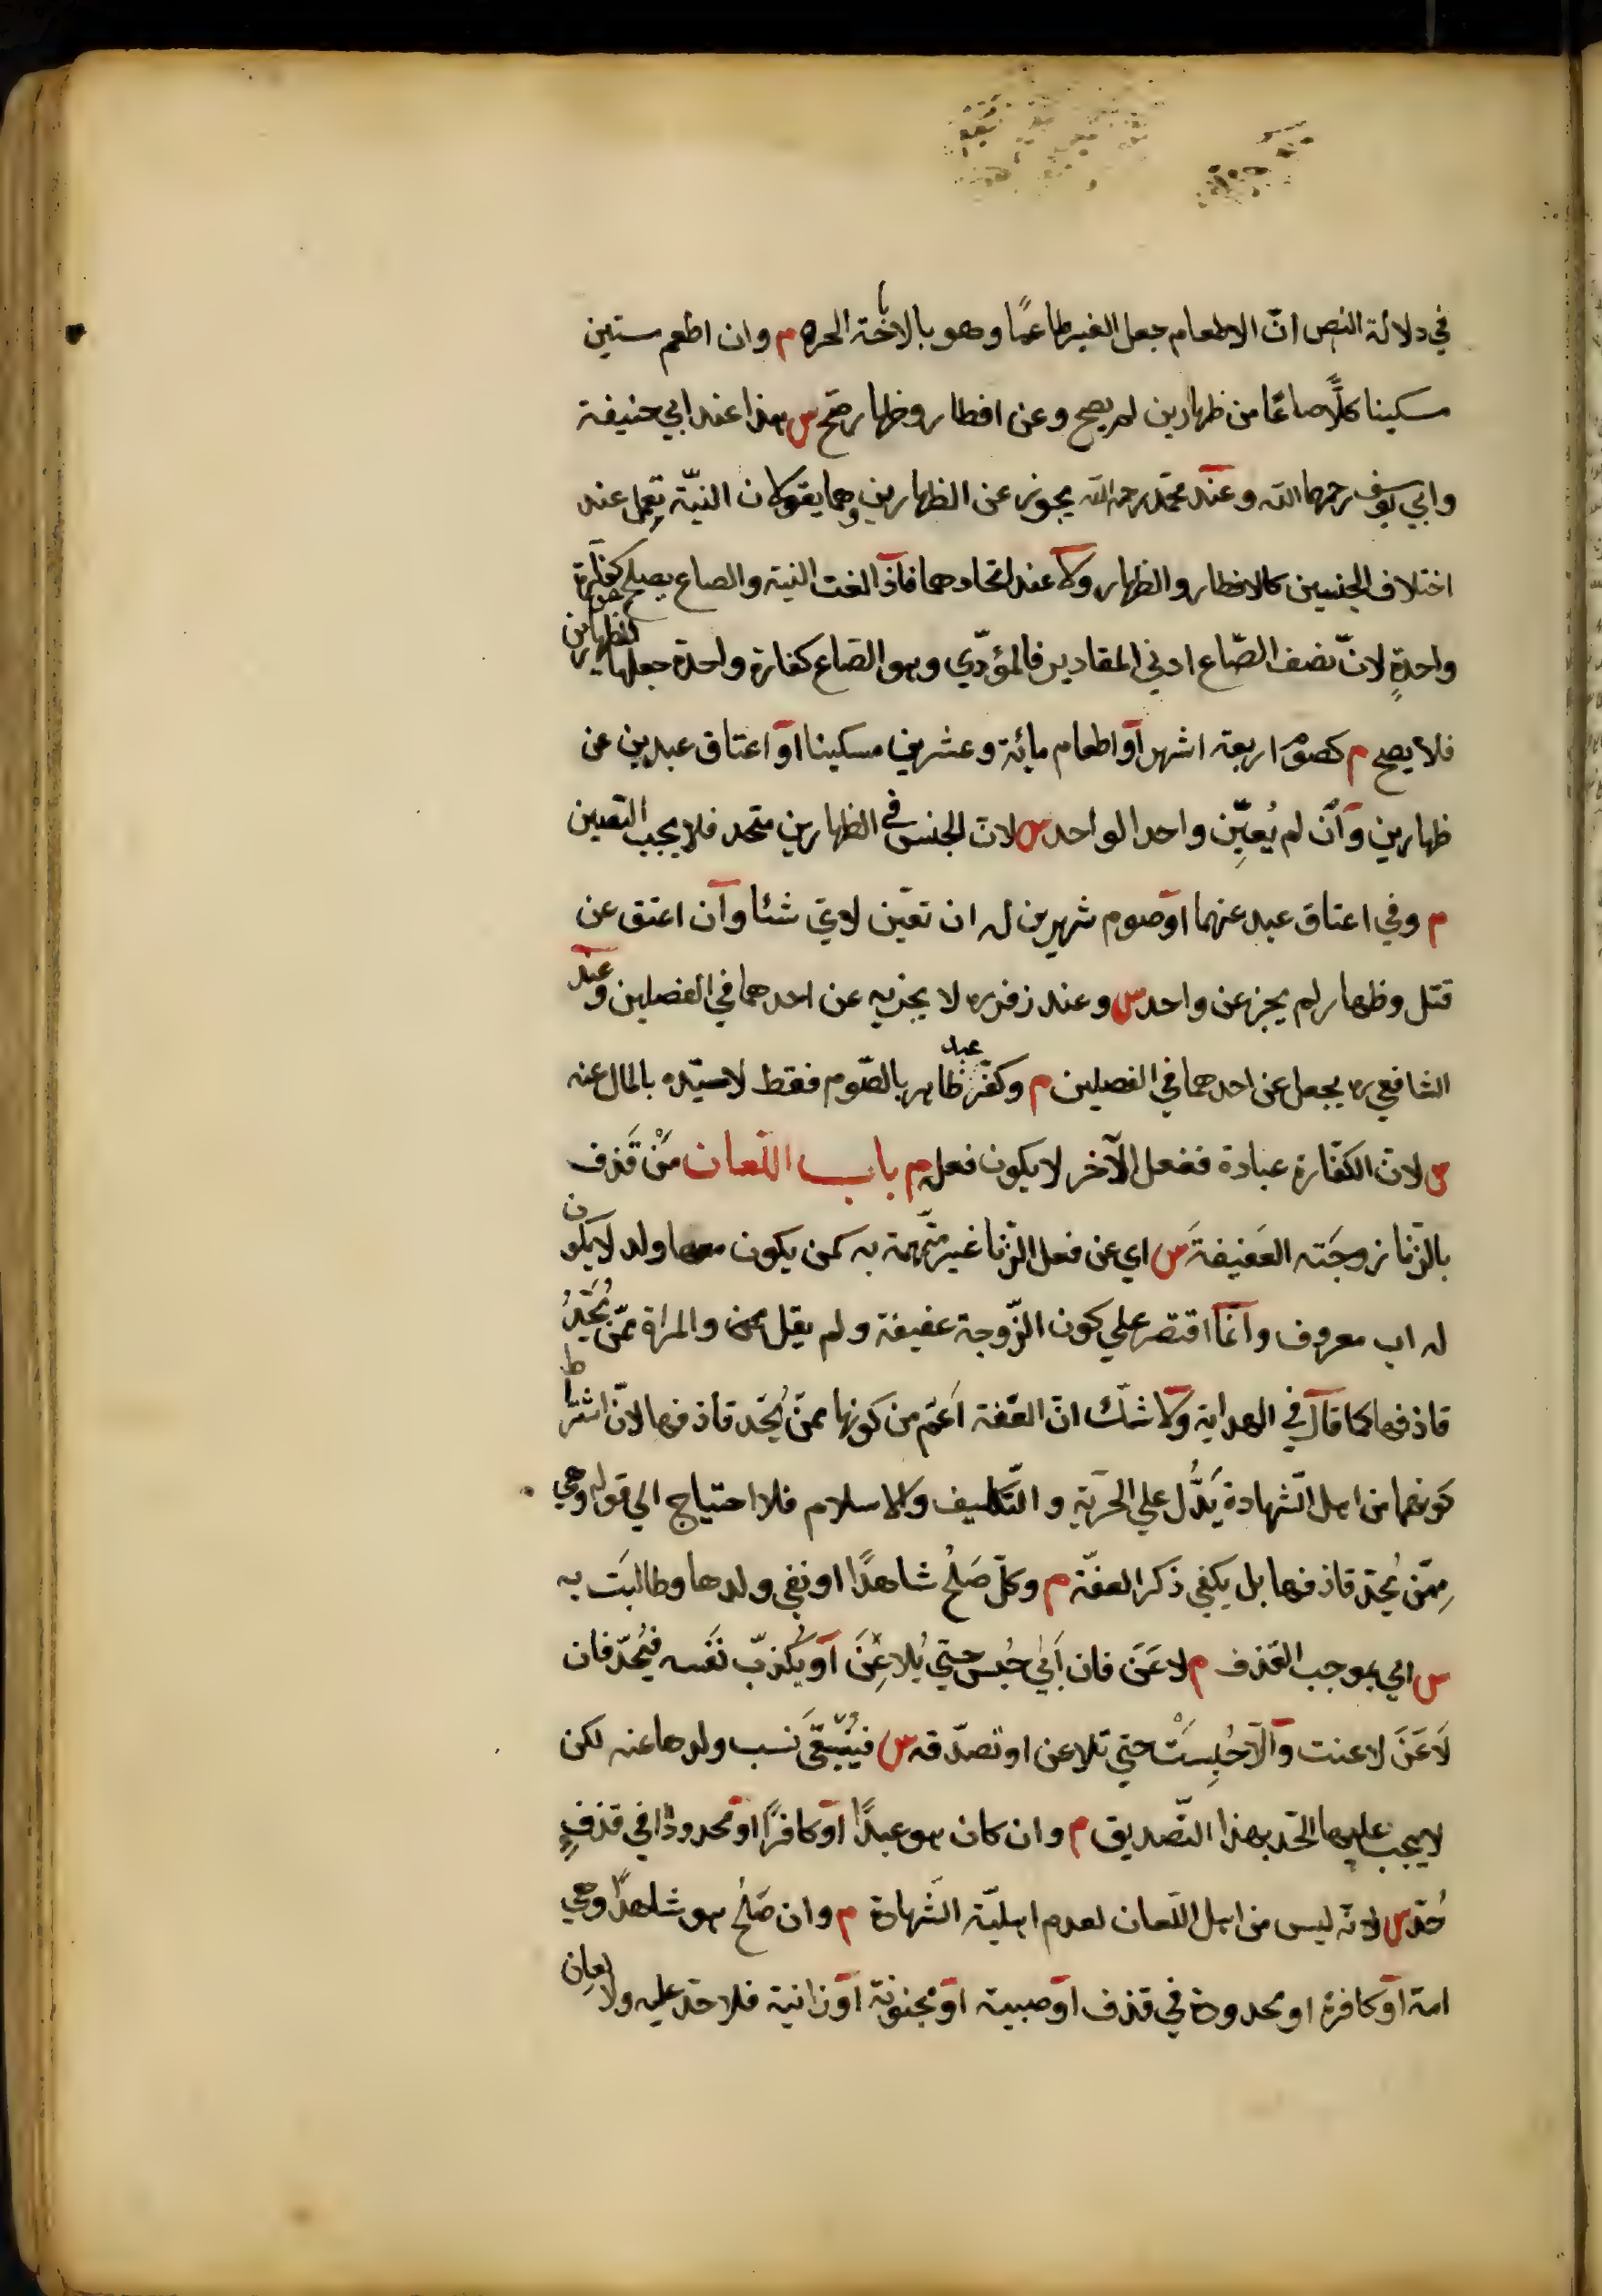 في دلالة النص انّ الاطعام جعل الغير طاعمًا وهو بالاباحة الحره م وان اطعم ستين
مسكينا كلًّا صاعًا من ظهارين لم يصح وعن افطار وظهار صّح س هذا عند ابي حنيفة
وابي يوسف رحمهما الله وعند محمّد رحمه الله يجوز عن الظهارين وهما يقولان النيّة تعمل عند
اختلاف الجنسين كالافطار والظهار ولا عند اتحادهما فاذا لغت النية والصاع يصلح كفّارة
واحدةٍ لانّ نصف الصّاع ادني المقادير فالمؤدّي وهو الصّاع كفارة واحدة جعلها للظهارين
فلا يصح م كصوم اربعة اشهر او اطعام مائة وعشرين مسكينا او اعتاق عبدين عن
ظهارين وان لم يُعيِّن واحدا لواحد س لان الجنس في الظهارين متحد فلا يجب التعيين
م وفي اعتاق عبد عنهما او صوم شهرين له ان تعيّن لايّ شئا وان اعتق عن
قتل وظهار لم يجز عن واحد س وعند زفر ره لا يجزيه عن احدهما في الفصلين وعند
الشافعي ره يجعل عن احدهما في الفصلين م وكفّر عبد ظاهر بالصّوم فقط لا سيّده بالمال عنه
س لان الكفّارة عبادة ففعل الآخر لا يكون فعله م باب اللّعان مَنْ قَذف
بالزّنا زوجَته العَفيفةَ س اي عن فعل الزّنا غير متّهمة به كمن يكون معها ولد لا يكون
له اب معروف وانّما اقتصر علي كون الزّوجة عفيفة ولم يقل والمراة ممّن يُحَدُّ
قاذفها كما قال في الهداية ولا شّك انّ العّفة اَعّم من كونها ممنّ يُحّد قاذفها لانّ اشتراط
كونهما من اهل الشّهادة يَدُّل علي الحرّية والتّكليف والاسلام فلا احتياج الي قوله وهي
مِمّن يُحدّ قاذفها بل يكفي ذكر العفّة م وكلّ صَلُحَ شاهدًا او نفي ولدها وطالبَت به
س اي بموجب القذف م لاعَنَ فان اَبي حُبس حتي يُلاعِنَ او يُكذبّ نَفسه فيُحدّ فان
لَاعَنَ لاعنت والّا حُبِسَتْ حتي تلاعن او تصدّقه س فيُنْفي نَسب ولدها عنه لكن
لا يجب عليها الحّد بهذا التّصديق م وان كان هو عبدًا او كافرًا او محدودًا في قذفٍ
حُدّ س لانّه ليس من اهل اللّعان لعدم اهليّة الشّهادة م وان صَلُحَ هو شاهدًا وهي
امة او كافرة او محدودة في قذف او صبية او مجنونة او زانية فلا حدّ عليه ولا لعان